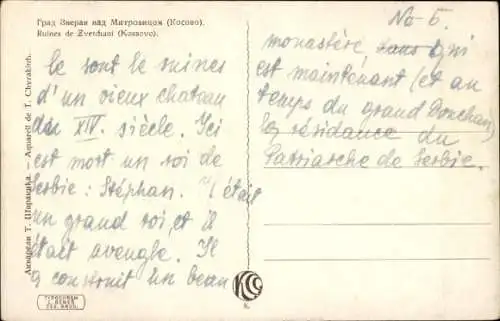 Град Звечан над Митровицом (Косово).
Ruines de Zvetchani (Kossovo).
Акварели Т. Швракића. — Aquarell de T. Chvrakich.
No - 5.
Ce sont le ruines
d'un vieux chateau
du XIV. siècle. Ici
est mort un roi de
Serbie: Stéphan. C'était
un grand roi et il
était aveugle. Il
a construit un beau
monastère dans qui
est maintenant (et au
temps du grand Douchan)
la résidance du
Patriarche de Serbie.
TYPOCHROM